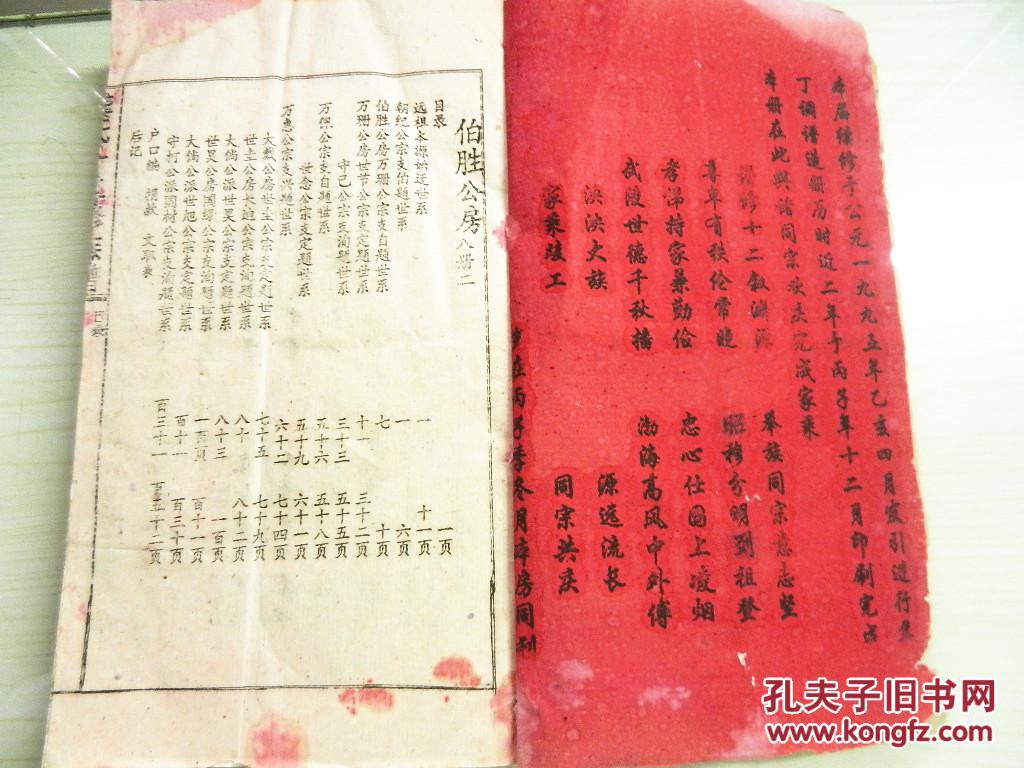 本届续修于公元一九九五年乙亥四月发引进行登
丁调谱造册历时近二年于丙子年十二月印刷完成
本册在此兴诸同宗欢庆完成家乘
谱修十二叙渊源 举族同宗意志坚
尊卑有秩伦常晓 昭穆分明到祖登
孝弟持家兼勤俭 忠心仕国上凌烟
武陵世德千秋播 渤海高风中外传
泱泱大族 源远流长
家乘竣工 同宗共庆
在丙子季冬月本房同刊
伯胜公房八册二
目录 一页
远祖本源站迁世系 一 十一页
朝纪公宗支伯题世系 一 六页
伯胜公房万珊公宗支自题世系 七 十页
万珊公房世节公宗支定题世系 十一 三十二页
守己公宗支洵题世系 三十三 五十五页
万保公宗支自题世系 五十六 五十八页
世念公宗支定题世系 五十九 六十一页
万惠公宗支兴题世系 六十二 七十四页
大猷公房世圭公宗支定题世系 七十五 七十九页
世圭公房长迪公宗支洵题世系 八十 八十二页
大倘公派世昊公宗支定题世系 八十三 一百页
世昊公房国缪公宗支洵题世系 一百一页 百十一页
大倘公派世旭公宗支定题世系 百十一 百三十页
守柯公派国村公宗支洵题世系 百三十一 百五十二页
户口编 捐款 文职表
后记
目录
孔夫子旧书网
www.kongfz.com